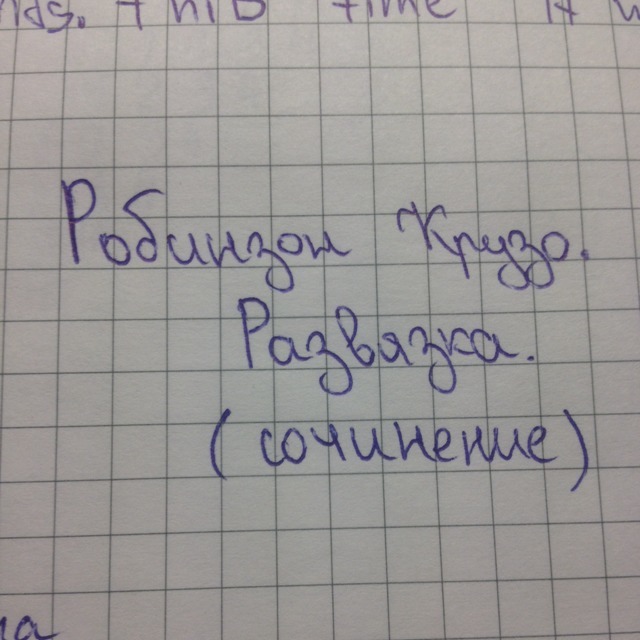 this time it
Робинзон Крузо.
Развазка.
(сочинение)
на